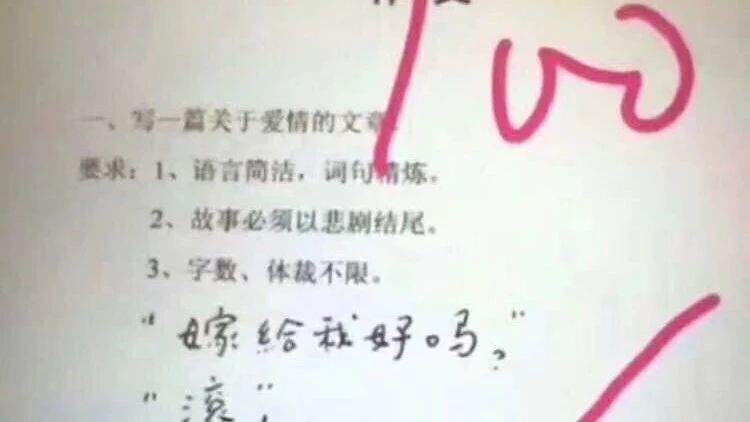 100
一、写一篇关于爱情的文章。
要求：1、语言简洁，词句精炼。
2、故事必须以悲剧结尾。
3、字数、体裁不限。
“嫁给我好吗？”
“滚”